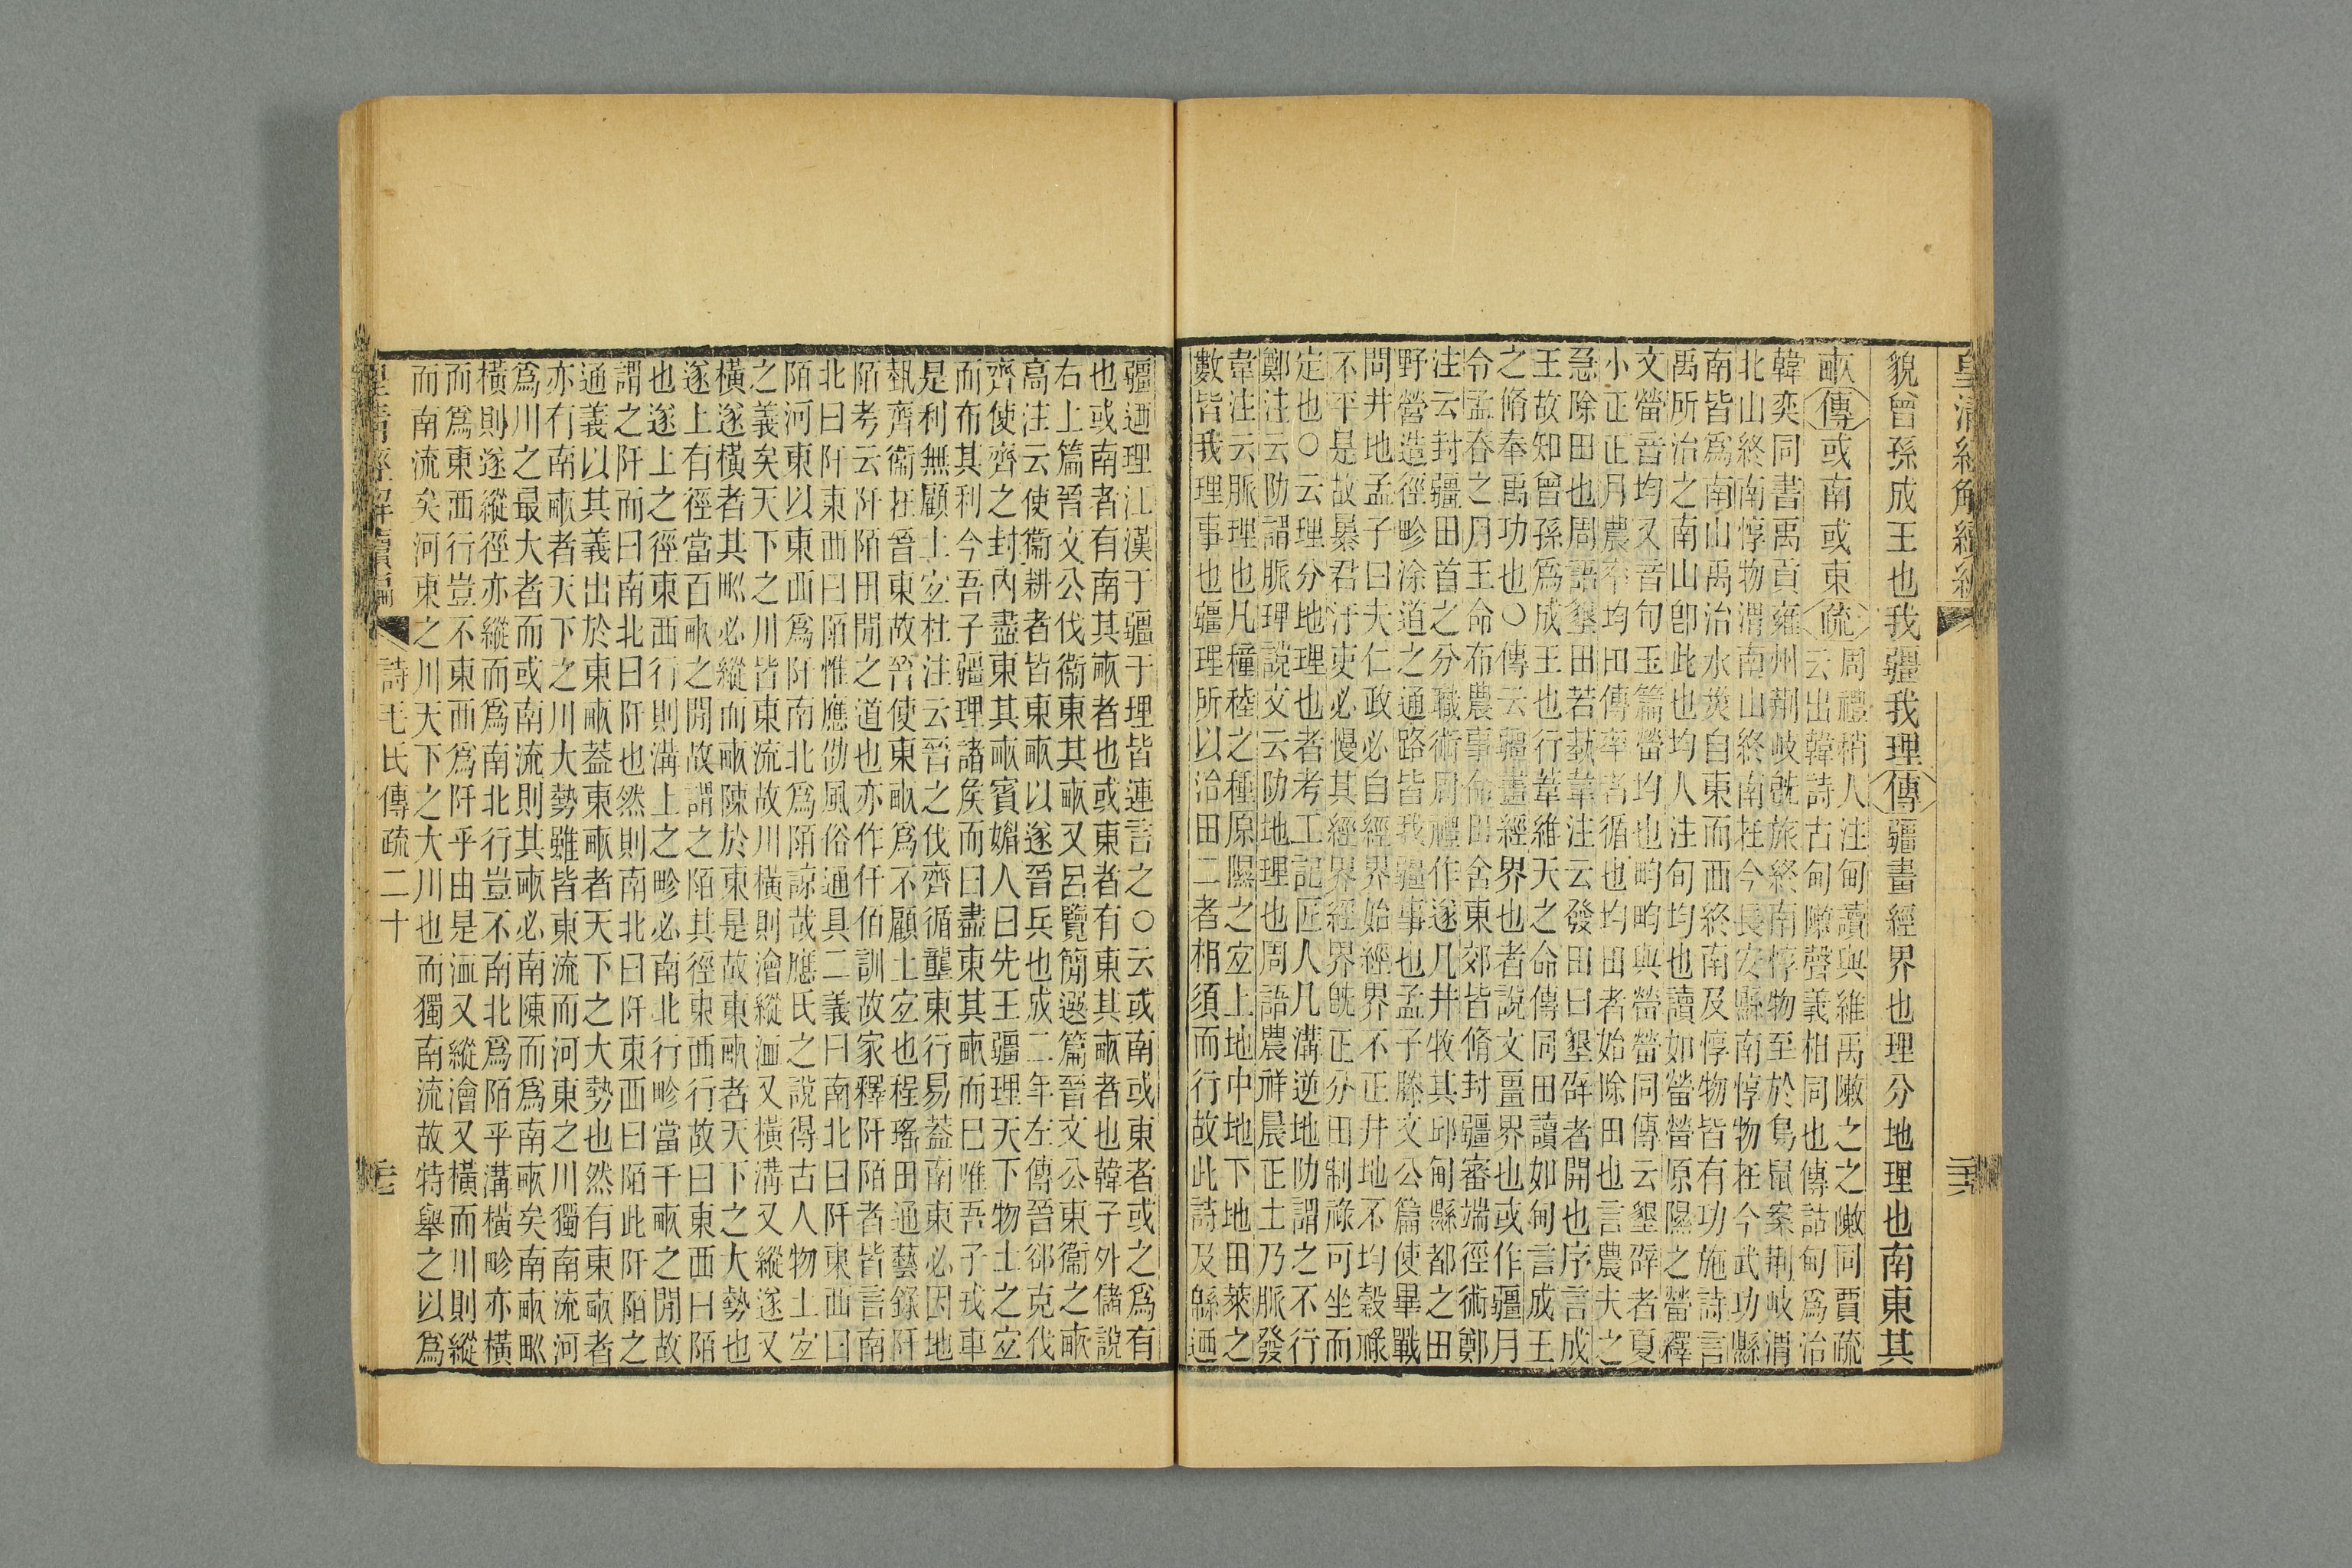 皇清經解續編
貌曾孫成王也我疆我理傳疆畫經界也理分地理也南東其
畝傳或南或東疏周禮稍人注甸讀與維禹敶之之敶同賈疏
云出韓詩古甸敶聲義相同也傳詁甸爲治
韓奕同書禹貢雍州荆岐旣旅終南惇物至於鳥鼠案荆岐渭
北山終南惇物渭南山終南在今長安縣南惇物在今武功縣
南皆爲南山禹治水災自東而西終南及惇物皆有功施詩言
禹所治之南山卽此也均人注旬均也讀如螢螢原隰之螢釋
文螢音均又音旬玉篇螢均也畇畇與螢螢同傳云墾辟者夏
小正正月農率均田傳率者循也均田者始除田也言農夫之
急除田也周語墾田若蓺韋注云發田曰墾辟者開也序言成
王故知曾孫爲成王也行葦維天之命傳同田讀如甸言成王
之脩奉禹功也○傳云疆畫經界也者說文畺界也或作疆月
令孟春之月王命布農事命田舍東郊皆脩封疆審端徑術鄭
注云封疆田首之分職術周禮作遂凡井牧其邱甸縣都之田
野營造徑畛涂道之通路皆我疆事也孟子滕文公篇使畢戰
問井地孟子曰夫仁政必自經界始經界不正井地不均穀祿
不平是故暴君汙吏必慢其經界經界旣正分田制祿可坐而
定也○云理分地理也者考工記匠人凡溝逆地阞謂之不行
鄭注云阞謂脈理說文云阞地理也周語農祥晨正土乃脈發
韋注云脈理也凡穜稑之種原隰之宐上地中地下地田萊之
數皆我理事也疆理所以治田二者相須而行故此詩及緜迺
疆迺理江漢于疆于理皆連言之○云或南或東者或之爲有
也或南者有南其畝者也或東者有東其畝者也韓子外儲說
右上篇晉文公伐衞東其畝又呂覽簡選篇晉文公東衞之畝
高注云使衞耕者皆東畝以遂晉兵也成二年左傳晉郤克伐
齊使齊之封內盡東其畝賓媚人曰先王疆理天下物土之宐
而布其利今吾子疆理諸矦而曰盡東其畝而已唯吾子戎車
是利無顧土宐杜注云晉之伐齊循壟東行易葢南東必因地
埶齊衞在晉東故晉使東畝爲不顧土宐也程瑤田通藝錄阡
陌考云阡陌田閒之道也亦作仟佰訓故家釋阡陌者皆言南
北曰阡東西曰陌惟應劭風俗通具二義曰南北曰阡東西曰
陌河東以東西爲阡南北爲陌諒哉應氏之說得古人物土宐
之義矣天下之川皆東流故川橫則澮縱洫又橫溝又縱遂又
橫遂橫者其甽必縱而畝陳於東是故東畝者天下之大勢也
遂上有徑當百畝之閒故謂之陌其徑東西行故曰東西曰陌
也遂上之徑東西行則溝上之畛必南北行畛當千畝之閒故
謂之阡而曰南北曰阡也然則南北曰阡東西曰陌此阡陌之
通義以其義出於東畝葢東畝者天下之大勢也然有東畝者
亦有南畝者天下之川大勢雖皆東流而河東之川獨南流河
爲川之最大者而或南流則其畝必南陳而爲南畝矣南畝甽
橫則遂縱徑亦縱而爲南北行豈不南北爲陌乎溝橫畛亦橫
而爲東西行豈不東西爲阡乎由是洫又縱澮又橫而川則縱
而南流矣河東之川天下之大川也而獨南流故特舉之以爲
皇清經解續編 詩毛氏傳疏二十